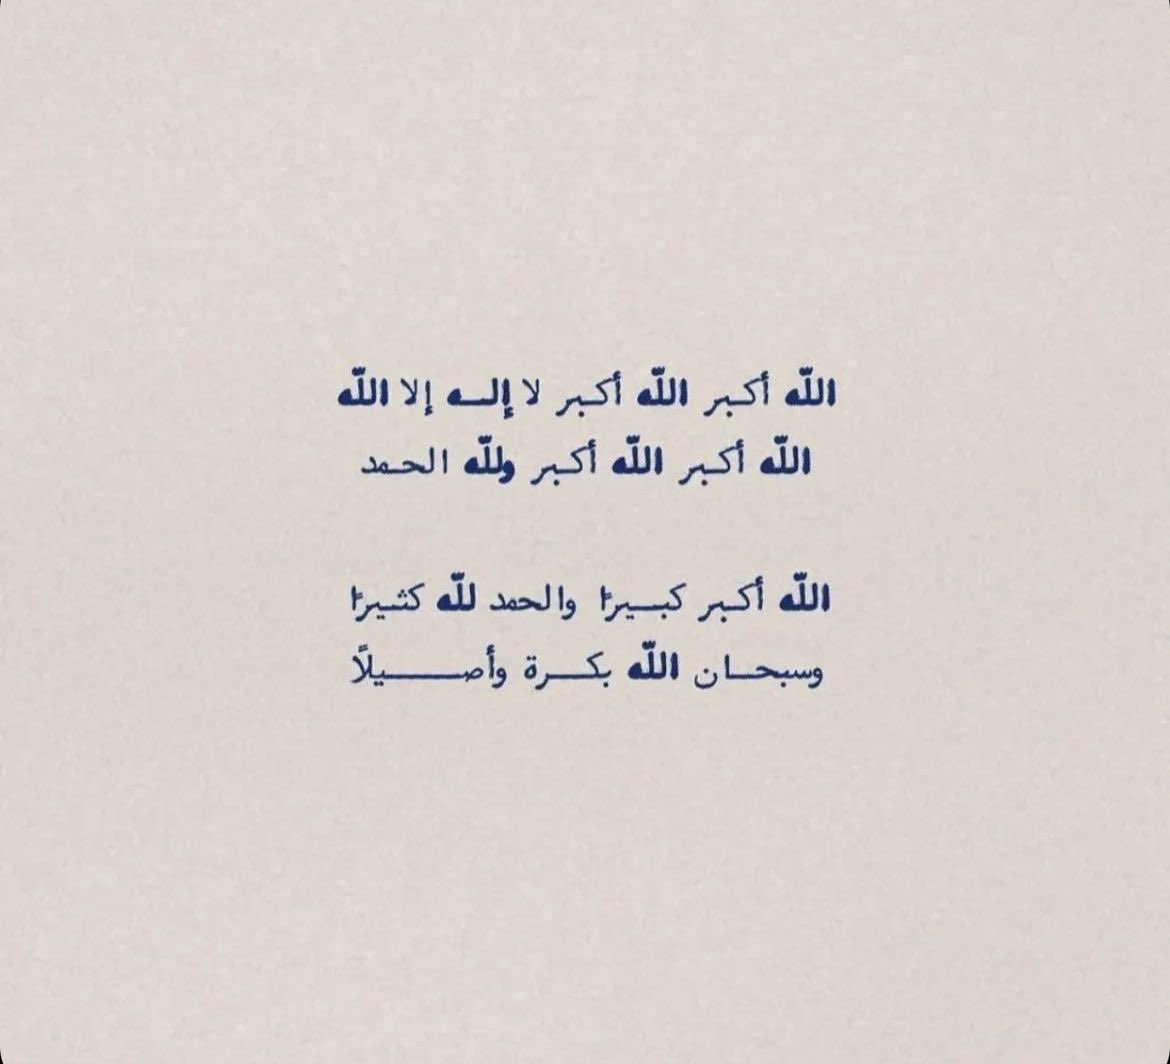 اللّه أكبر اللّه أكبر لا إله إلا اللّه
اللّه أكبر اللّه أكبر وللّه الحمد
اللّه أكبر كبيرًا والحمد للّه كثيرًا
وسبحان اللّه بكرة وأصيلًا